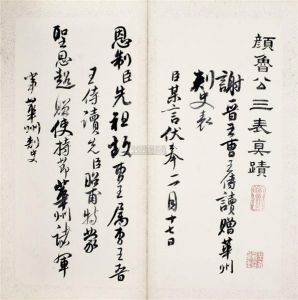 顏魯公三表真蹟
謝贈祖曹王侍讀贈華州
刺史表
臣某言伏奉二月十七日
恩制臣先祖故曹王屬曹王晉
王侍讀先臣昭甫特蒙
聖恩超贈使持節華州諸軍
事華州刺史